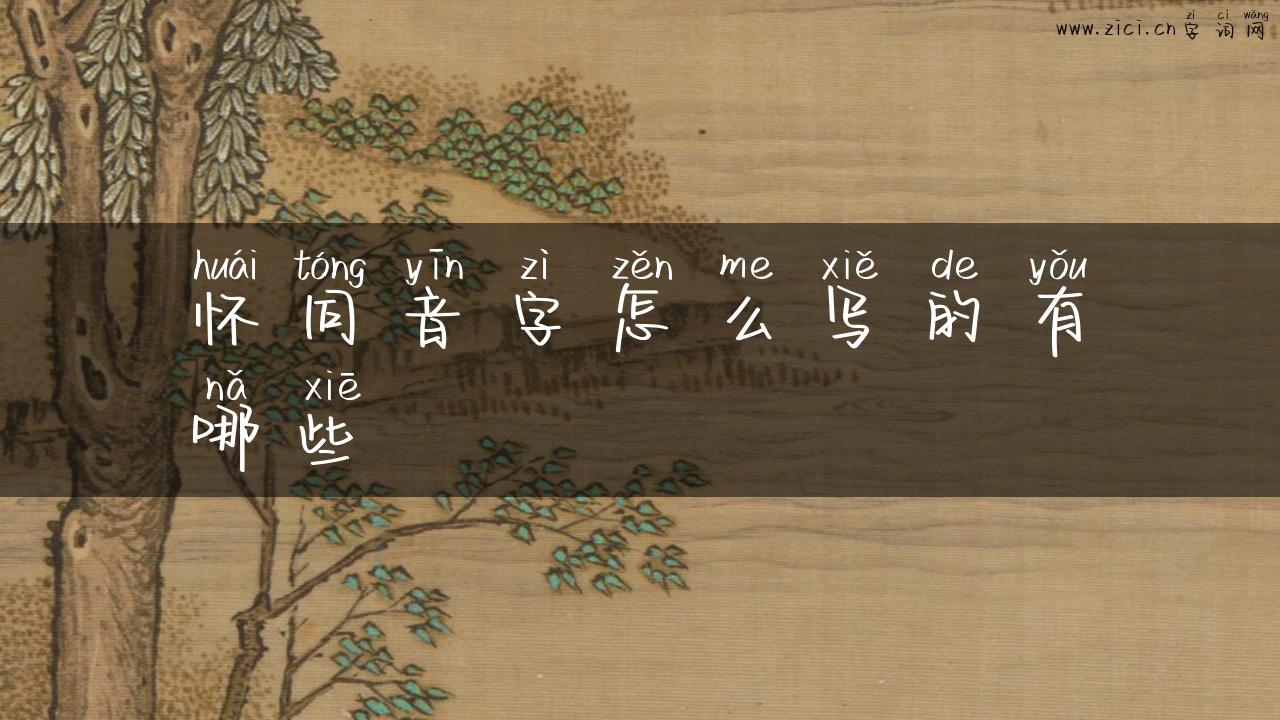 zì cí wǎng
www.zici.cn 字词网
huái tóng yīn zì zěn me xiě de yǒu
怀同音字怎么写的有
nǎ xiē
哪些